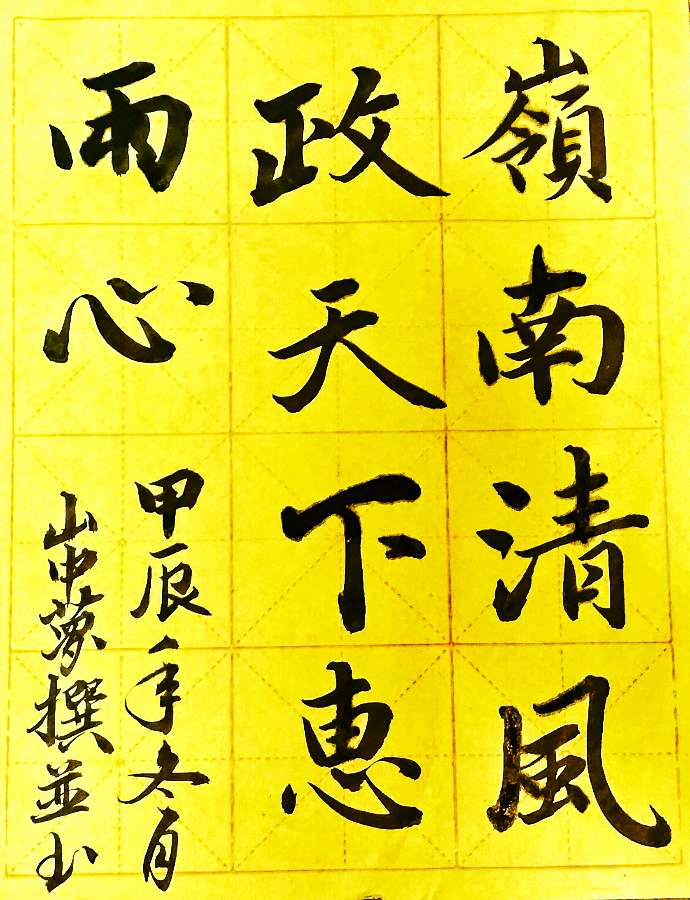 嶺南清風
政天下惠
雨心
甲辰年冬月
山中夢撰並书